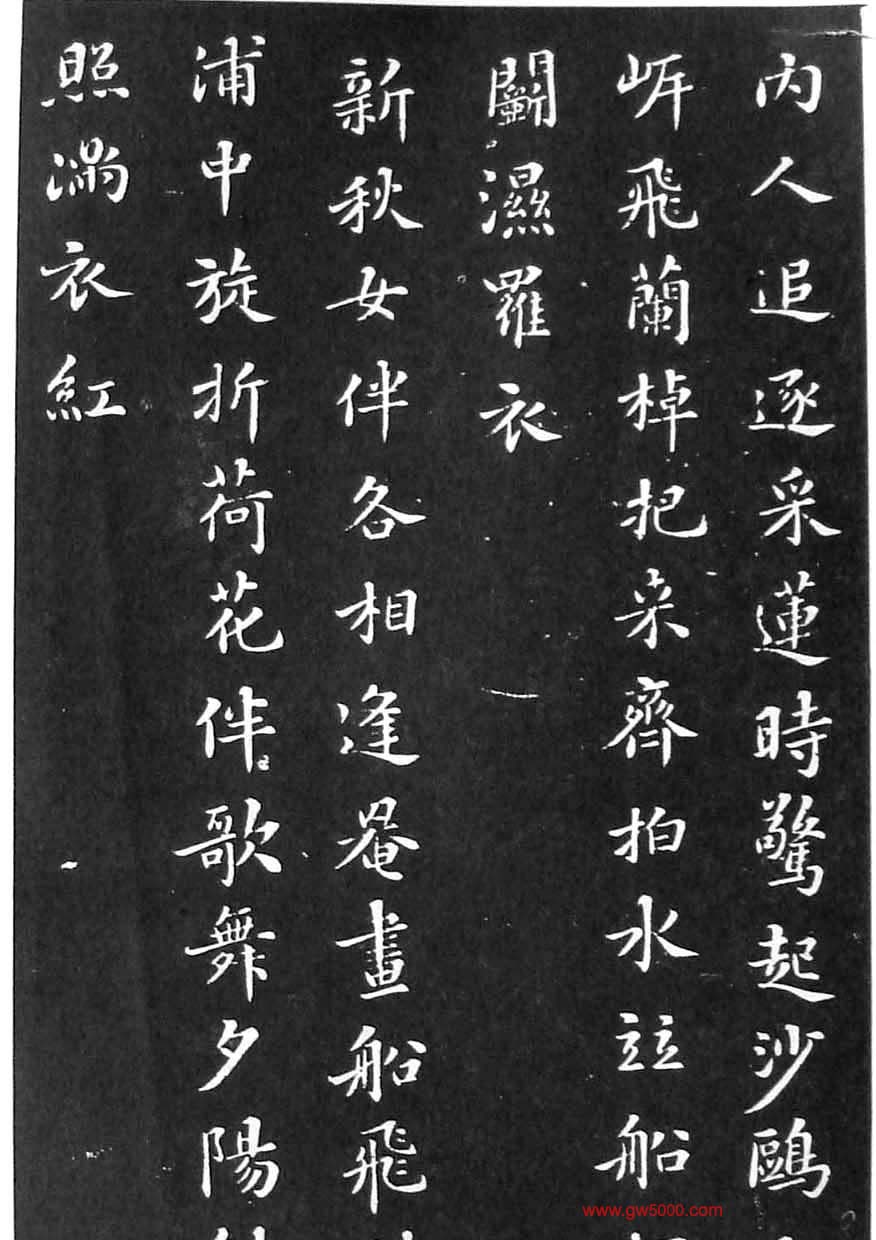 内人追逐采蓮時驚起沙鷗
岸飛蘭棹把来齊拍水竝船
鬭濕羅衣
新秋女伴各相逢罨畫船飛
浦中旋折荷花伴歌舞夕陽
照滿衣紅
www.gw5000.com